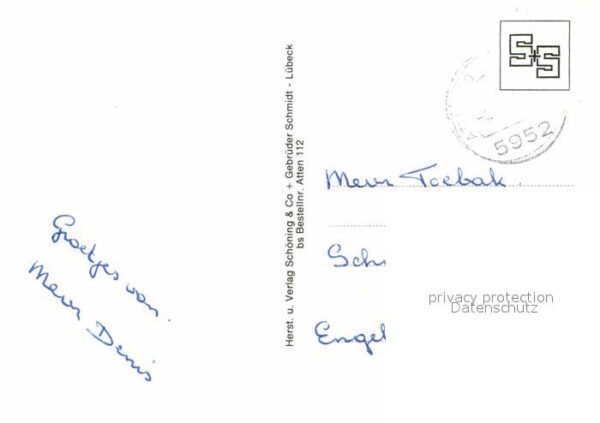 S+S
5952
Herst. u. Verlag Schöning & Co + Gebrüder Schmidt - Lübeck
bs Bestellnr. Atten 112
Mevr Toebak.
Sch
Engel
privacy protection
Datenschutz
Groetjes van.
Mevr Denis